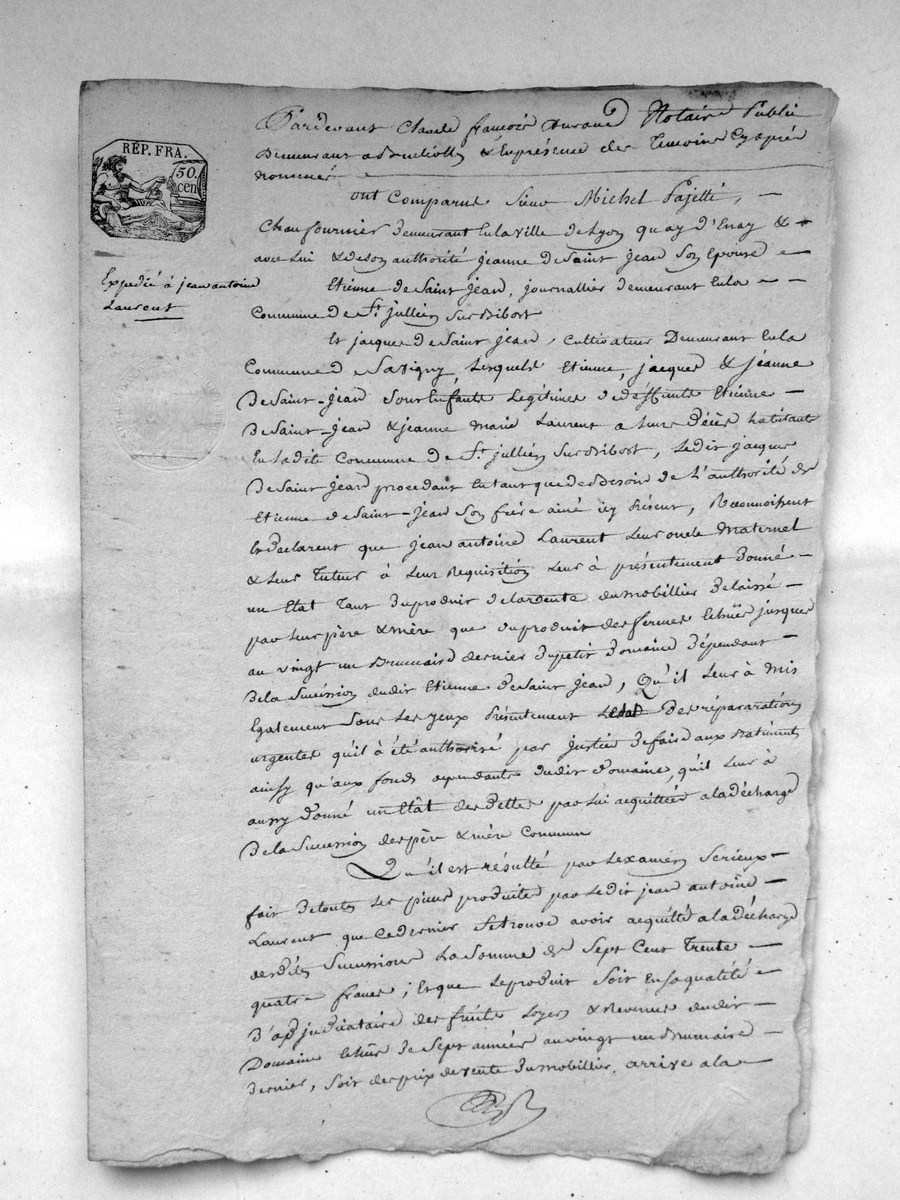 Pardevant Claude françois Durand Notaire Public
Demeurant a & Enprésence des Temoins Cyaprès
nommés
RÉP. FRA.
50.
cen
ont Comparus Sieur Michel Pajetté,
Chaufournier Demeurant Enlaville de Lyon quay d'Enay &
avec Lui & deson authorité jeanne de Saint jean Son Epouse
Expedié à jean antoine
Laurent
Etienne de Saint jean, journallier demeurant Enla
Commune de St. jullien Sur Bibost
Et jacques de Saint jean, Cultivateur Demeurant Enla
Commune de Savigny, Lesquels Etienne, jacques & jeanne
De Saint-jean Sont Enfants Legitimes de deffunts Etienne
De Saint-jean & jeanne Marie Laurent a Leurs Décès habitants
En Ladite Commune de St. jullien Sur Bibost, Ledit jacques
De Saint jean procedant Entant que de besoin de L'authorité de
Etienne de Saint-jean Son frère ainé icy Présent, Reconnoissent
& Déclarent que jean antoine Laurent Leur oncle Maternel
& Leur Tuteur à Leur Requisition Leur à présentement Donné
un Etat Tant Du produit de La vente du mobillier Délaissé
par Leur père & mère que du produit des fermes Echües jusques
au vingt un Brumaire dernier Du petit Domaine Dépendant
De La Sucession dudit Etienne de Saint jean, Qu'il Leur à Mis
Egalement Sous Les yeux Présentement Létat Des réparations
urgentes qu'il à été authorisé par justice De faire aux Batiments
ainsy qu'aux fonds dependants dudit Domaine, qu'il Leur à
aussy Donné un Etât des Dettes par Lui acquittées a La Décharge
De La Sucession des père & mère Commun
Qu'il est résulté par Lexamen Serieux
fait De toutes Les pièces produites par Ledit jean antoine
Laurent que Ce dernier Se trouve avoir acquitté a La Décharge
desdites Sucessions La Somme de Sept Cent Trente
quatre francs; Et que Le produit Soit En Sa qualité
D'adjudicataire des fruits Loyers & Revenus dudit
Domaine Echüs de Sept années au vingt un Brumaire
Dernier, Soit des prix de vente Du mobillier, arrive a La